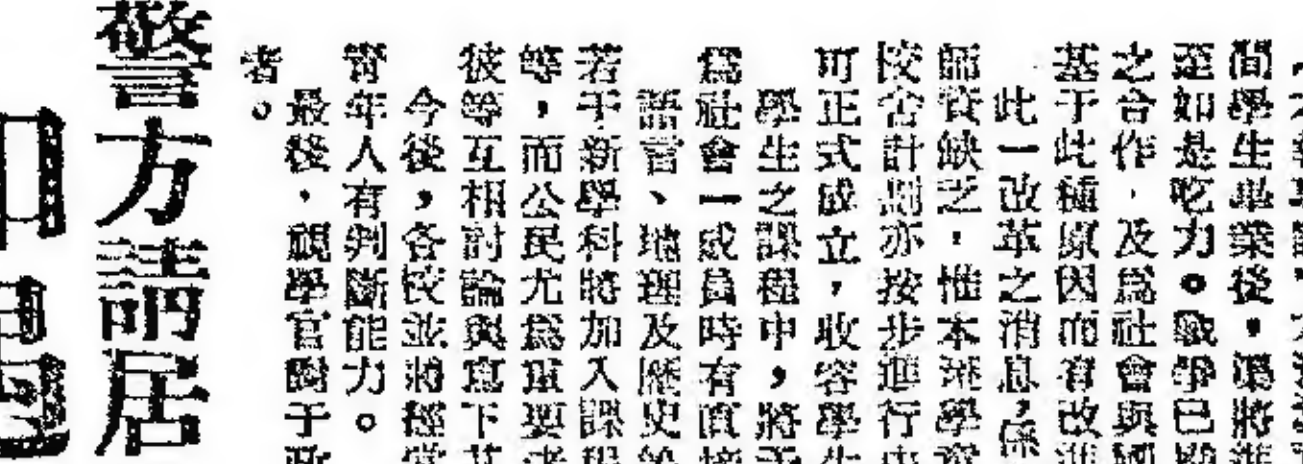 間學生畢業後，漸將進
至如是吃力。戰爭已
之合作，及爲社會與國
基于此種原因而有改進
此一改革之消息，係
師資缺乏，惟本港學
校舍計劃亦按步進行
可正式成立，收容學生
學生之課程中，將于
爲社會一成員時有直接
語言、地理及歷史
若干新學科將加入課程
等，而公民尤爲重要
彼等互相討論與寫下其
今後，各校並將經常
青年人有判斷能力。
最後，視學官對于
者。
警方請居